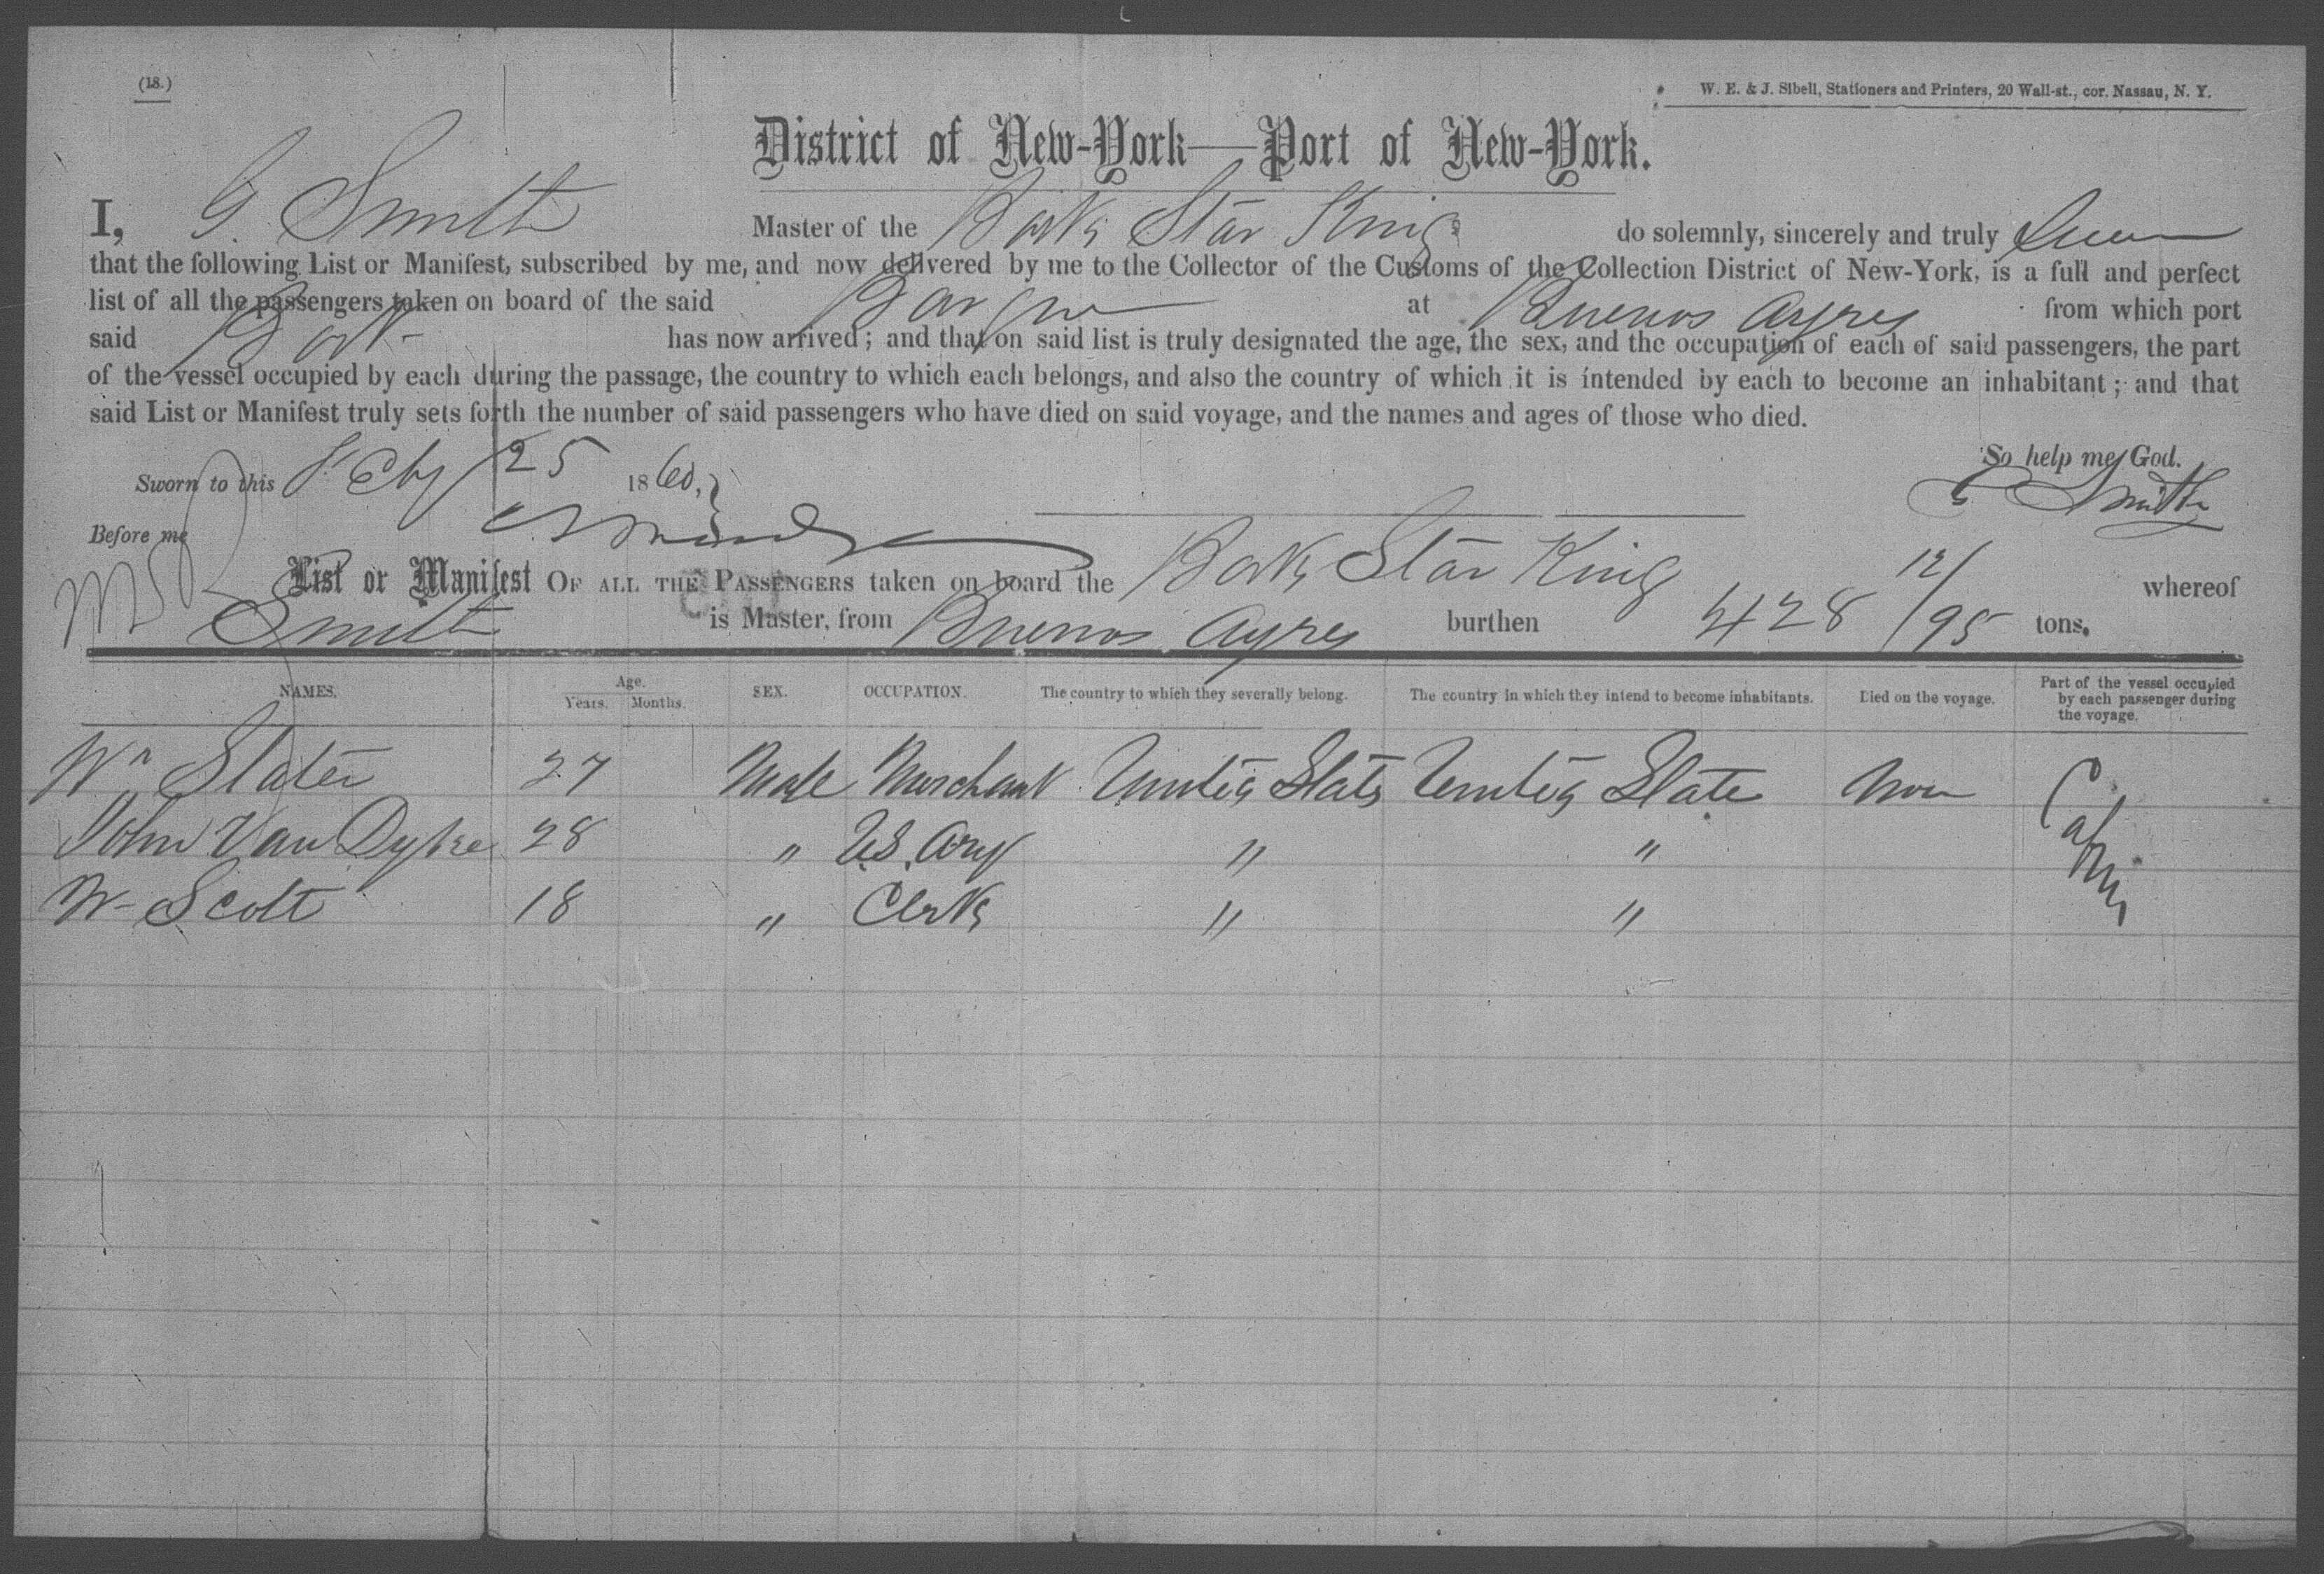 (18.)
W. E. & J. Sibell, Stationers and Printers, 20 Wall-st., cor. Nassau, N. Y.
District of New-York—Port of New-York.
I, G. Smith Master of the Bark Star King do solemnly, sincerely and truly Swear
that the following List or Manifest, subscribed by me, and now delivered by me to the Collector of the Customs of the Collection District of New-York, is a full and perfect
list of all the passengers taken on board of the said Barque at Buenos Ayres from which port
said Bark has now arrived; and that on said list is truly designated the age, the sex, and the occupation of each of said passengers, the part
of the vessel occupied by each during the passage, the country to which each belongs, and also the country of which it is intended by each to become an inhabitant; and that
said List or Manifest truly sets forth the number of said passengers who have died on said voyage, and the names and ages of those who died.
So help me God.
Sworn to this Feby 25 1860, Smith
Before me
List or Manifest OF ALL THE PASSENGERS taken on board the Bark Star King whereof
Smith is Master, from Buenos Ayres burthen 428 12/95 tons.
NAMES. Age. Years. Months. SEX. OCCUPATION. The country to which they severally belong. The country in which they intend to become inhabitants. Died on the voyage. Part of the vessel occupied by each passenger during the voyage.
Wm Slater 27 Male Merchant United States United State Non Cabin
John Van Dyke 28 " U.S. " "
W Scott 18 " Clerk " "